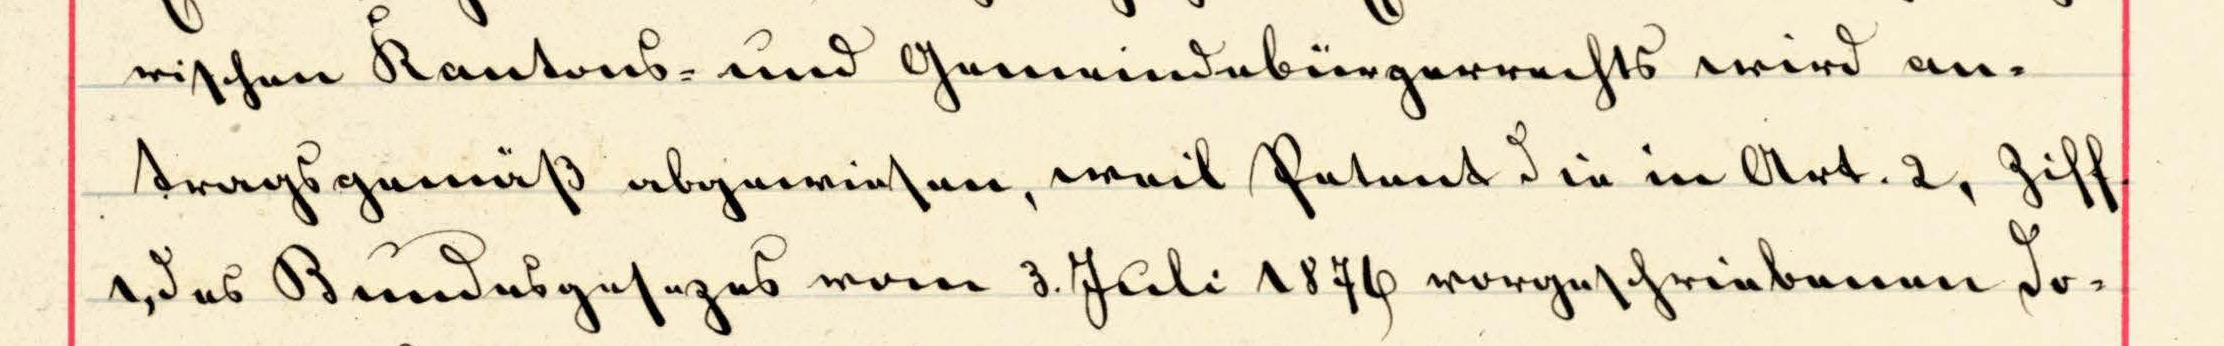 rischen Kantons- und Gemeindebürgerrechts wird an-
tragsgemäß abgewiesen, weil Petent die in Art. 2, Ziff.
1, des Bundesgesezes vom 3. Juli 1876 vorgeschriebenen Do-